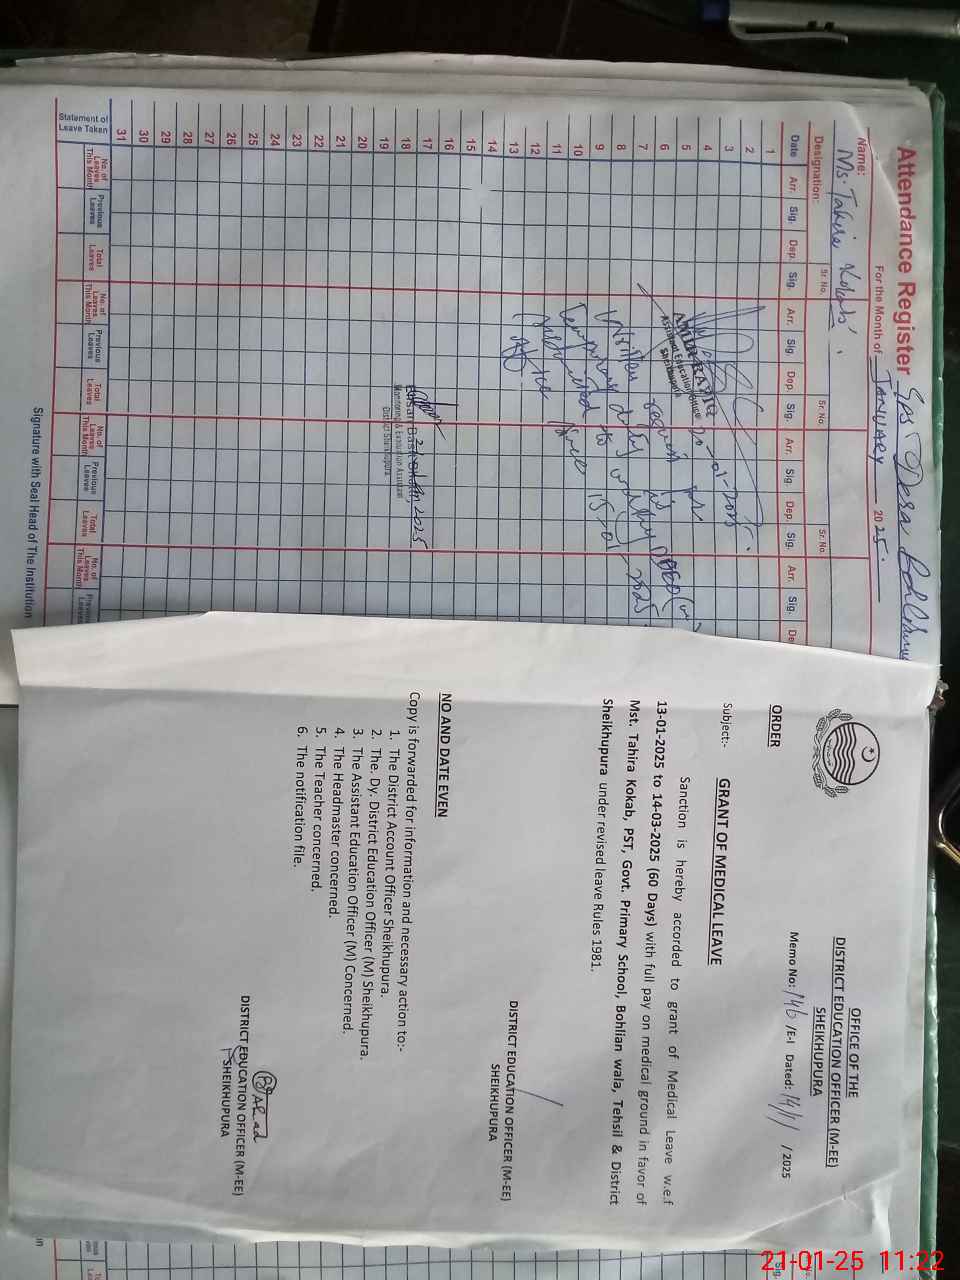 Attendance Register
For the Month of JANUARY 2025
Name: Ms. Tahira Kokab
Designation:
Sr. No. Sr. No. Sr. No.
Date Arr. Sig. Dep. Sig. Arr. Sig. Dep. Sig. Arr. Sig. Dep. Sig. Arr. Sig.
1
2
3
4
5
6
7
8
9
10
11
12
13
14
15
16
17
18
19
20
21
22
23
24
25
26
27
28
29
30
31
Statement of Leave Taken
No. of Leaves This Month Previous Leaves Total Leaves No. of Leaves This Month Previous Leaves Total Leaves No. of Leaves This Month Previous Leaves Total Leaves No. of Leaves This Month
Signature with Seal Head of The Institution
Assistant Education Officer
Sheikhupura
20-01-2025
Monitoring & Evaluation Assistant
District Sheikhupura
OFFICE OF THE
DISTRICT EDUCATION OFFICER (M-EE)
SHEIKHUPURA
Memo No: 146 /E-I Dated: 14/1/ /2025
ORDER
Subject:- GRANT OF MEDICAL LEAVE
Sanction is hereby accorded to grant of Medical Leave w.e.f
13-01-2025 to 14-03-2025 (60 Days) with full pay on medical ground in favor of
Mst. Tahira Kokab, PST, Govt. Primary School, Bohlian wala, Tehsil & District
Sheikhupura under revised leave Rules 1981.
DISTRICT EDUCATION OFFICER (M-EE)
SHEIKHUPURA
NO AND DATE EVEN
Copy is forwarded for information and necessary action to:-
1. The District Account Officer Sheikhupura.
2. The. Dy. District Education Officer (M) Sheikhupura.
3. The Assistant Education Officer (M) Concerned.
4. The Headmaster concerned.
5. The Teacher concerned.
6. The notification file.
DISTRICT EDUCATION OFFICER (M-EE)
SHEIKHUPURA
21-01-25 11:22